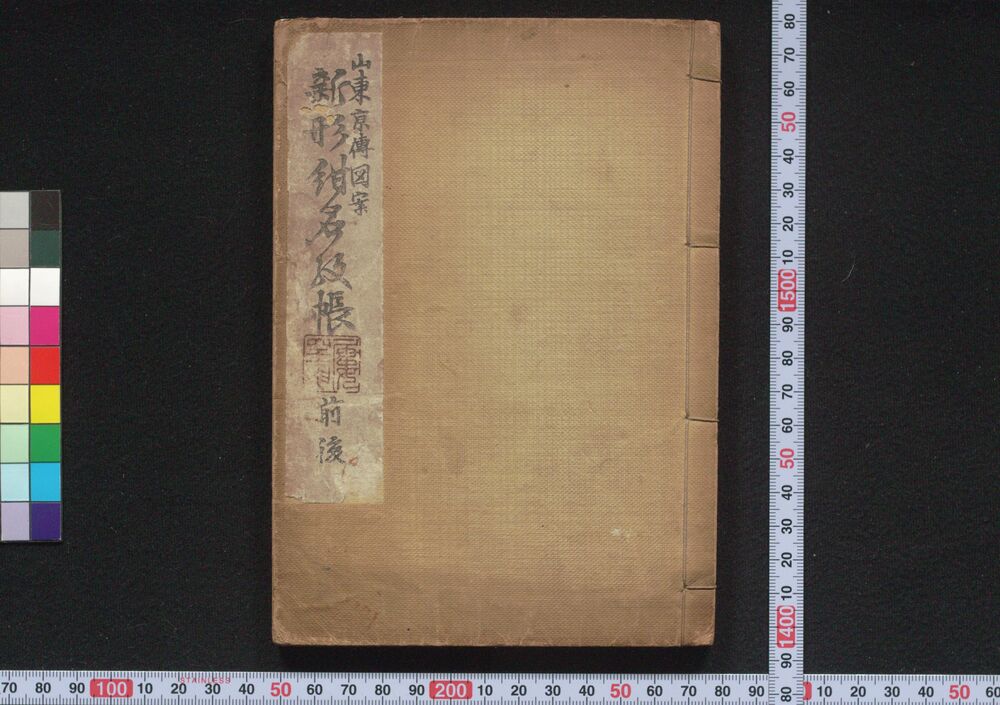 山東京傳図案
新形紺名紋帳
前後
80
70
60
50
40
30
20
10
1500
90
80
70
60
50
40
30
20
10
1400
90
80
STAINLESS
70 80 90 100 10 20 30 40 50 60 70 80 90 200 10 20 30 40 50 60 70 80 90 10 20 30 40 50 60